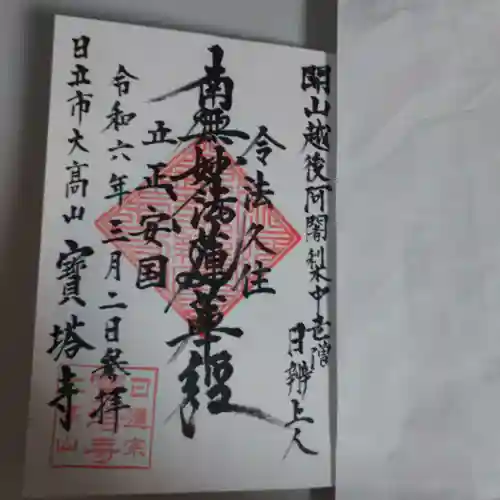 開山越後阿闍梨中老僧
日辨上人
令法久住
南無妙法蓮華経
立正安国
令和六年三月二日参拝
日立市大高山 寳塔寺
日蓮宗